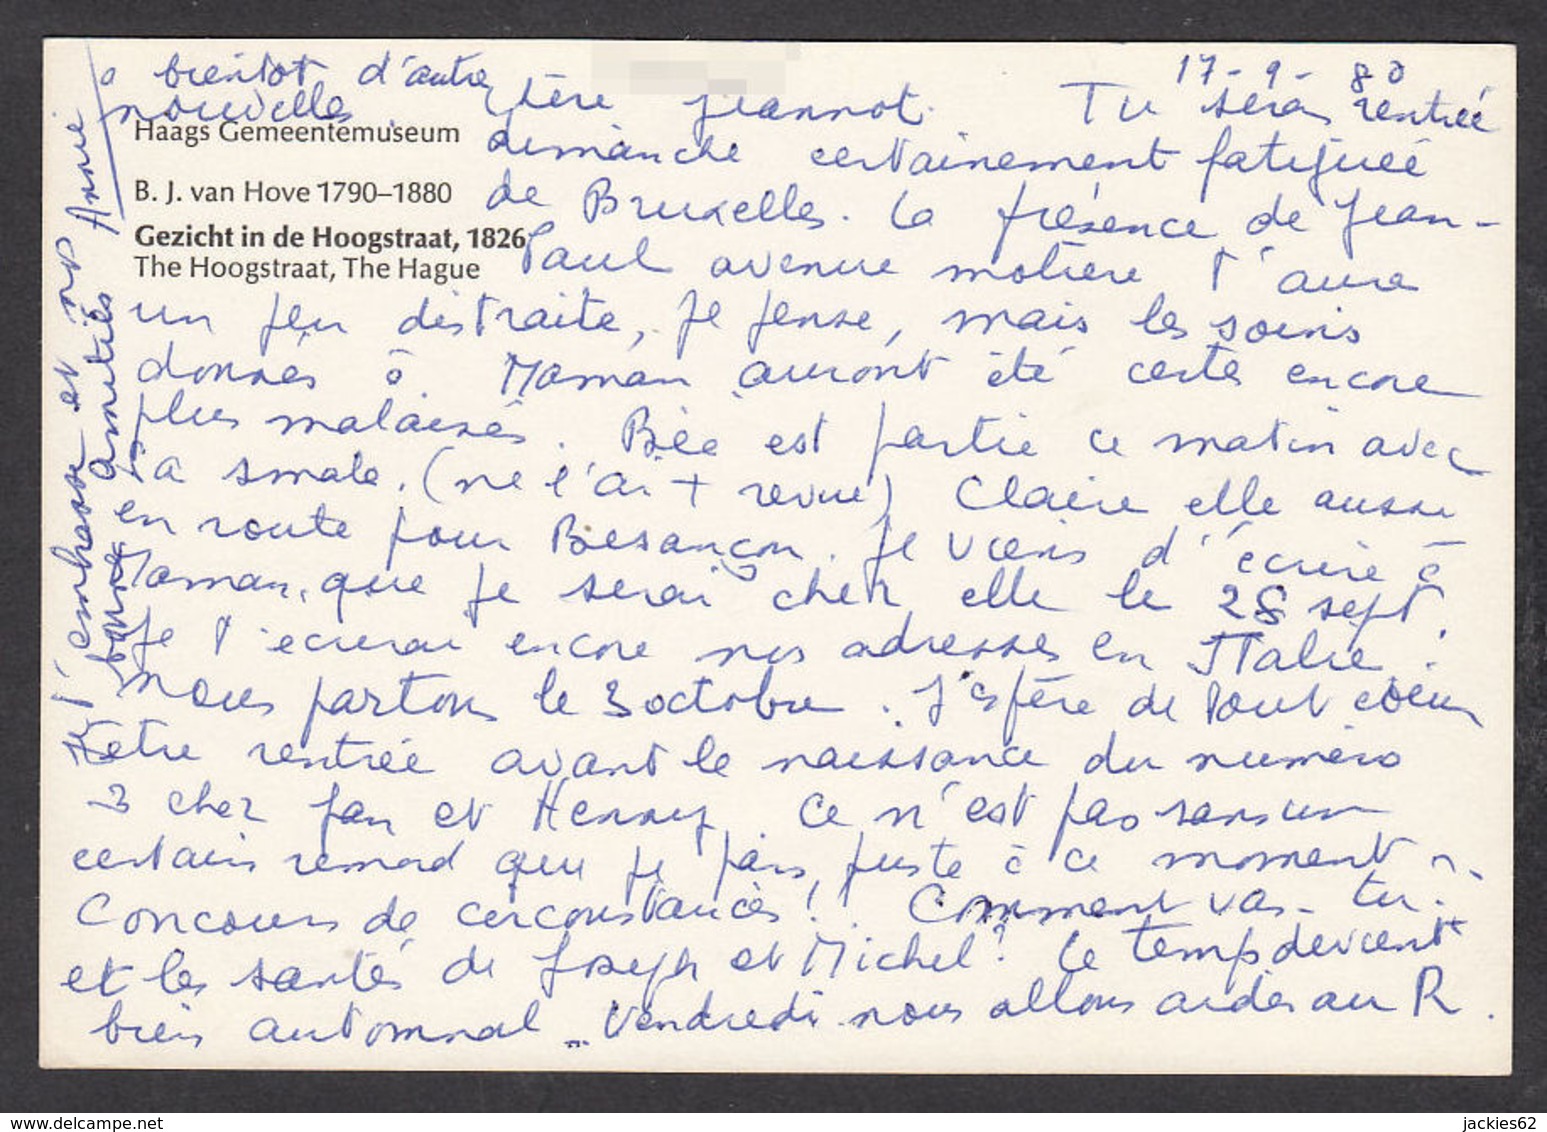 17-9-80
jeannot. Tu seras rentrée
dimanche certainement fatiguée
de Bruxelles. La présence de Jean-
Paul avenue molière t'aura
un peu distraite, je pense, mais les soins
donnés à Maman auront été certes encore
plus malaisés. Bée est partie ce matin avec
sa smala. (ne l'ai + revue) Claire elle aussi
en route pour Besançon. Je viens d'écrire à
Maman, que je serai chez elle le 28 sept.
Je t'écrirai encore nos adresses en Italie.
nous partons le 3 octobre. J'espère de tout coeur
être rentrée avant la naissance du numéro
3 chez Jan et Henny. Ce n'est pas sans un
certain remord que je pars juste à ce moment
Concours de circonstances! Comment vas-tu
et les santés de Joseph et Michel? Le temps devient
bien automnal.. Vendredi nous allons aider au R.
t'embrasse et nos
bonnes amitiés
Annie
à bientot d'autre
nouvelles.
Haags Gemeentemuseum
B. J. van Hove 1790–1880
Gezicht in de Hoogstraat, 1826
The Hoogstraat, The Hague
jackies62